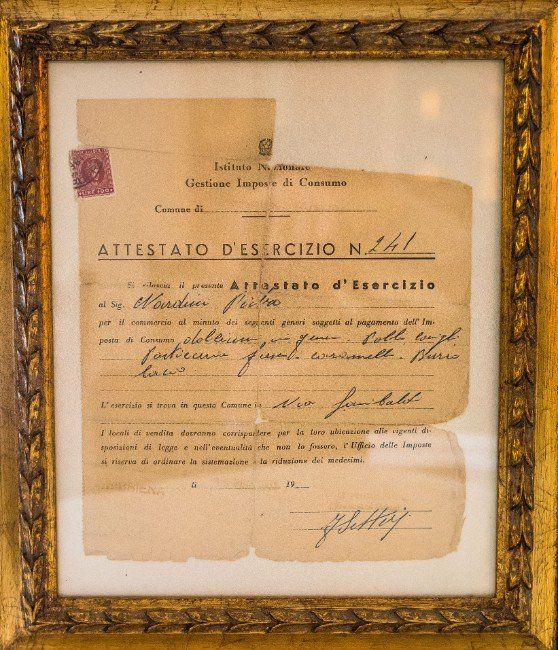 LIRE 100
Istituto Nazionale
Gestione Imposte di Consumo
Comune di
ATTESTATO D'ESERCIZIO N. 241
Si rilascia il presente Attestato d'Esercizio
al Sig. Nardini Pietro
per il commercio al minuto dei seguenti generi soggetti al pagamento dell'Im-
posta di Consumo dolciumi in genere. Polli conigli
Pasticceria caramelle. Burro
cacio
L'esercizio si trova in questo Comune in Via Garibaldi
I locali di vendita dovranno corrispondere per la loro ubicazione alle vigenti di-
sposizioni di legge e nell'eventualità che non lo fossero, l'Ufficio delle Imposte
si riserva di ordinare la sistemazione o la riduzione dei medesimi.
li 19